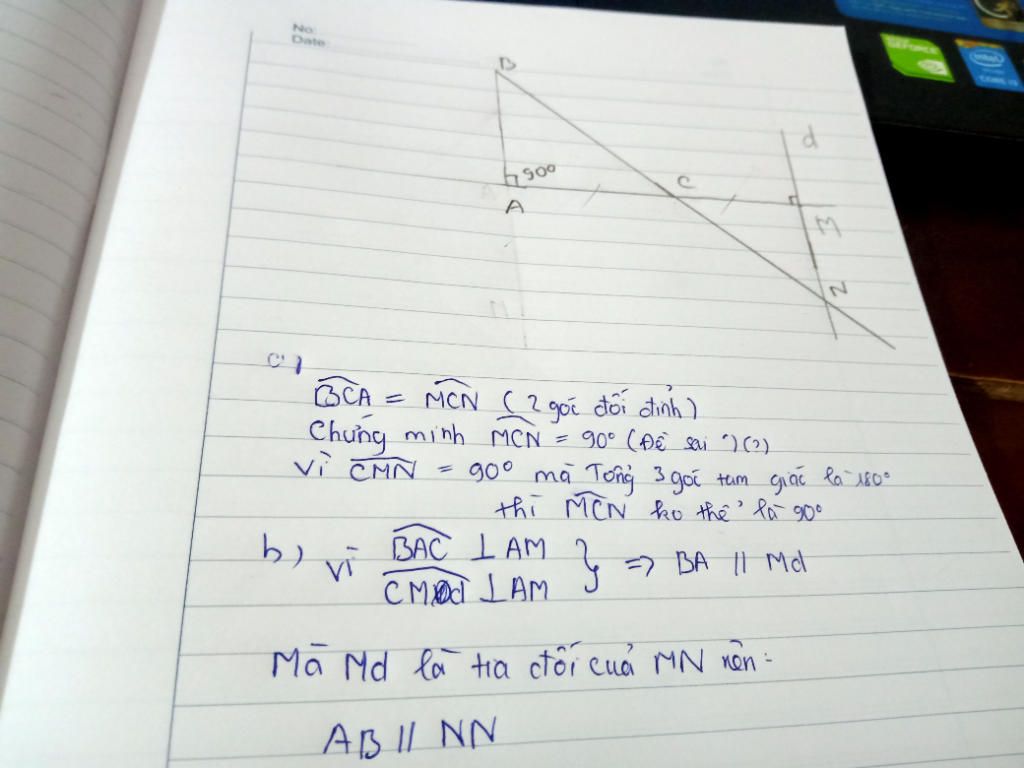 No:
Date:
GEFORCE
intel
CORE i3
B
d
90°
C
A
M
N
a)
BCA = MCN (2 góc đối đỉnh)
Chứng minh MCN = 90° (Đề sai?) (?)
Vì CMN = 90° mà Tổng 3 góc tam giác là 180°
thì MCN ko thể là 90°
b) Vì BAC ⊥ AM
CMd ⊥ AM } => BA // Md
Mà Md là tia đối của MN nên:
AB // NN